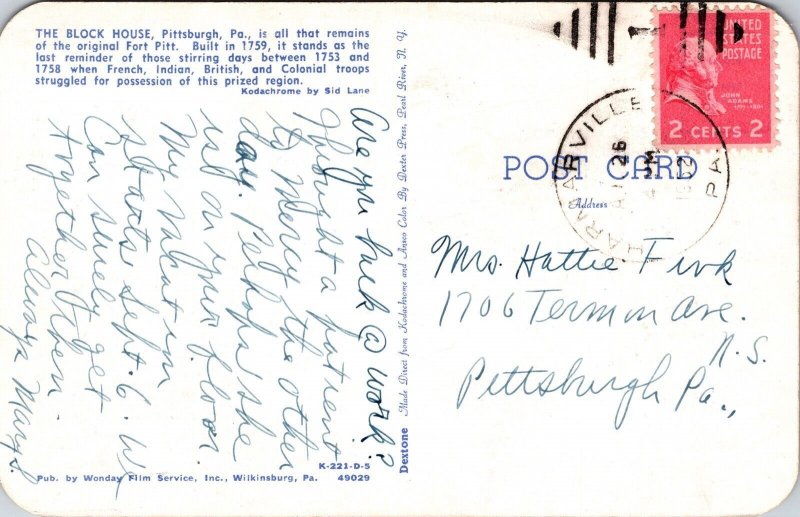 THE BLOCK HOUSE, Pittsburgh, Pa., is all that remains
of the original Fort Pitt. Built in 1759, it stands as the
last reminder of those stirring days between 1753 and
1758 when French, Indian, British, and Colonial troops
struggled for possession of this prized region.
Kodachrome by Sid Lane
Are you back @ work?
Brought a patient
to Mercy the other
day. Perhaps she
is on your floor.
My Vacation
starts Sept. 6. We
Can surely get
together then.
Always Mary S.
K-221-D-5
Pub. by Wonday Film Service, Inc., Wilkinsburg, Pa. 49029
Dextone Made Direct from Kodachrome and Ansco Color By Dexter Press, Pearl River, N. Y.
UNITED
STATES
POSTAGE
JOHN
ADAMS
2 CENTS 2
HARMARVILLE
PA.
26
POST CARD
Address
Mrs. Hattie Fink
1706 Termon Ave.
N. S.
Pittsburgh Pa.,